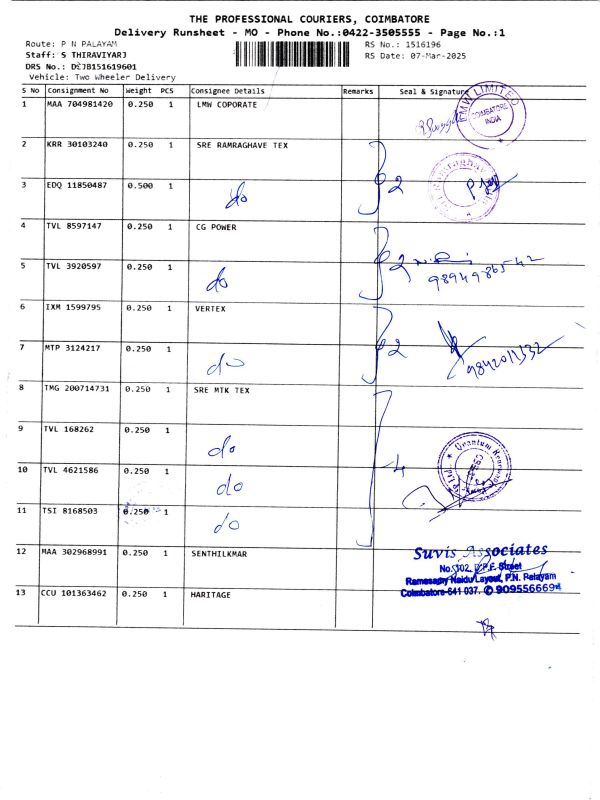 THE PROFESSIONAL COURIERS, COIMBATORE
Delivery Runsheet - MO - Phone No.:0422-3505555 - Page No.:1
Route: P N PALAYAM
RS No.: 1516196
Staff: S THIRAVIYARJ
RS Date: 07-Mar-2025
DRS No.: DCJB151619601
Vehicle: Two Wheeler Delivery
S No Consignment No Weight PCS Consignee Details Remarks Seal & Signature
1 MAA 704981420 0.250 1 LMW COPORATE
LIMITED COIMBATORE INDIA
2 KRR 30103240 0.250 1 SRE RAMRAGHAVE TEX
3 EDQ 11850487 0.500 1 do 2
4 TVL 8597147 0.250 1 CG POWER
5 TVL 3920597 0.250 1 do 2 9894986542
6 IXM 1599795 0.250 1 VERTEX
7 MTP 3124217 0.250 1 do 2
8 TMG 200714731 0.250 1 SRE MTK TEX
9 TVL 168262 0.250 1 do
10 TVL 4621586 0.250 1 do 4
11 TSI 8168503 0.250 1 do
12 MAA 302968991 0.250 1 SENTHILKMAR
Suvis Associates
No.102, D.P.F. Street
Ramasamy Naidu Layout, P.N. Palayam
Coimbatore-641 037.
13 CCU 101363462 0.250 1 HARITAGE